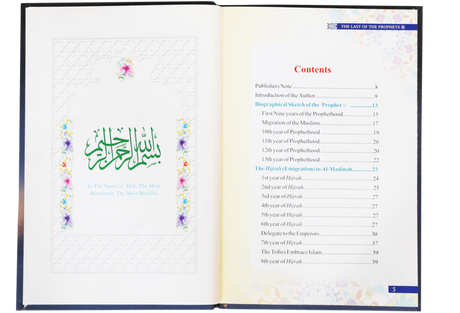 بسم الله الرحمن الرحيم
In The Name of Allah, The Most
Beneficent, The Most Merciful
THE LAST OF THE PROPHETS ﷺ
Contents
Publishers Note 8
Introduction of the Author 9
Biographical Sketch of the Prophet ﷺ 13
First Nine years of the Prophethood 15
Migration of the Muslims 17
10th year of Prophethood 19
11th year of Prophethood 20
12th year of Prophethood 20
13th year of Prophethood 22
The Hijrah (Emigration) to Al-Madinah 23
1st year of Hijrah 24
2nd year of Hijrah 25
3rd year of Hijrah 27
4th year of Hijrah 27
5th year of Hijrah 27
6th year of Hijrah 27
Delegate to the Emperors 30
7th year of Hijrah 37
The Tribes Embrace Islam 39
8th year of Hijrah 39
5